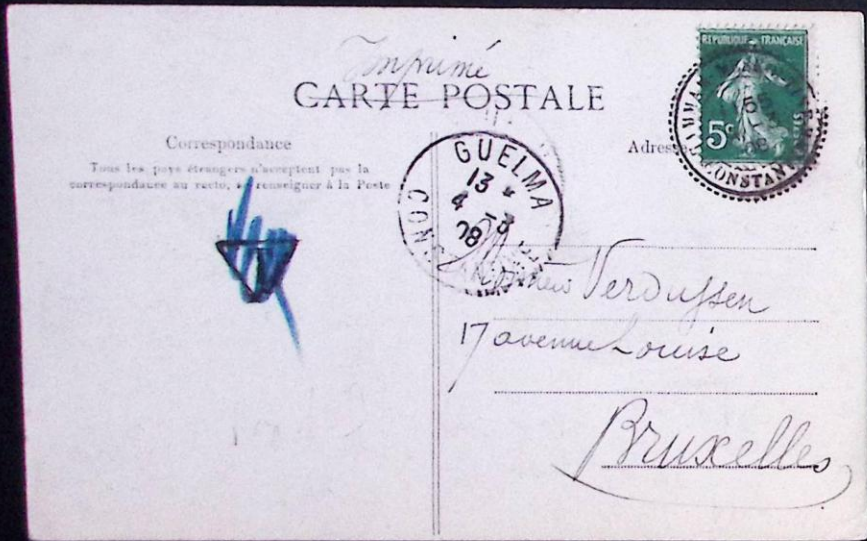 Imprimé
CARTE POSTALE
Correspondance
Tous les pays étrangers n'acceptent pas la
correspondance au recto, se renseigner à la Poste
Adresse
RÉPUBLIQUE FRANÇAISE
5c
CONSTANTINE
GUELMA
13
4 -3
08
CONSTANTINE
Verdussen
17 avenue Louise
Bruxelles